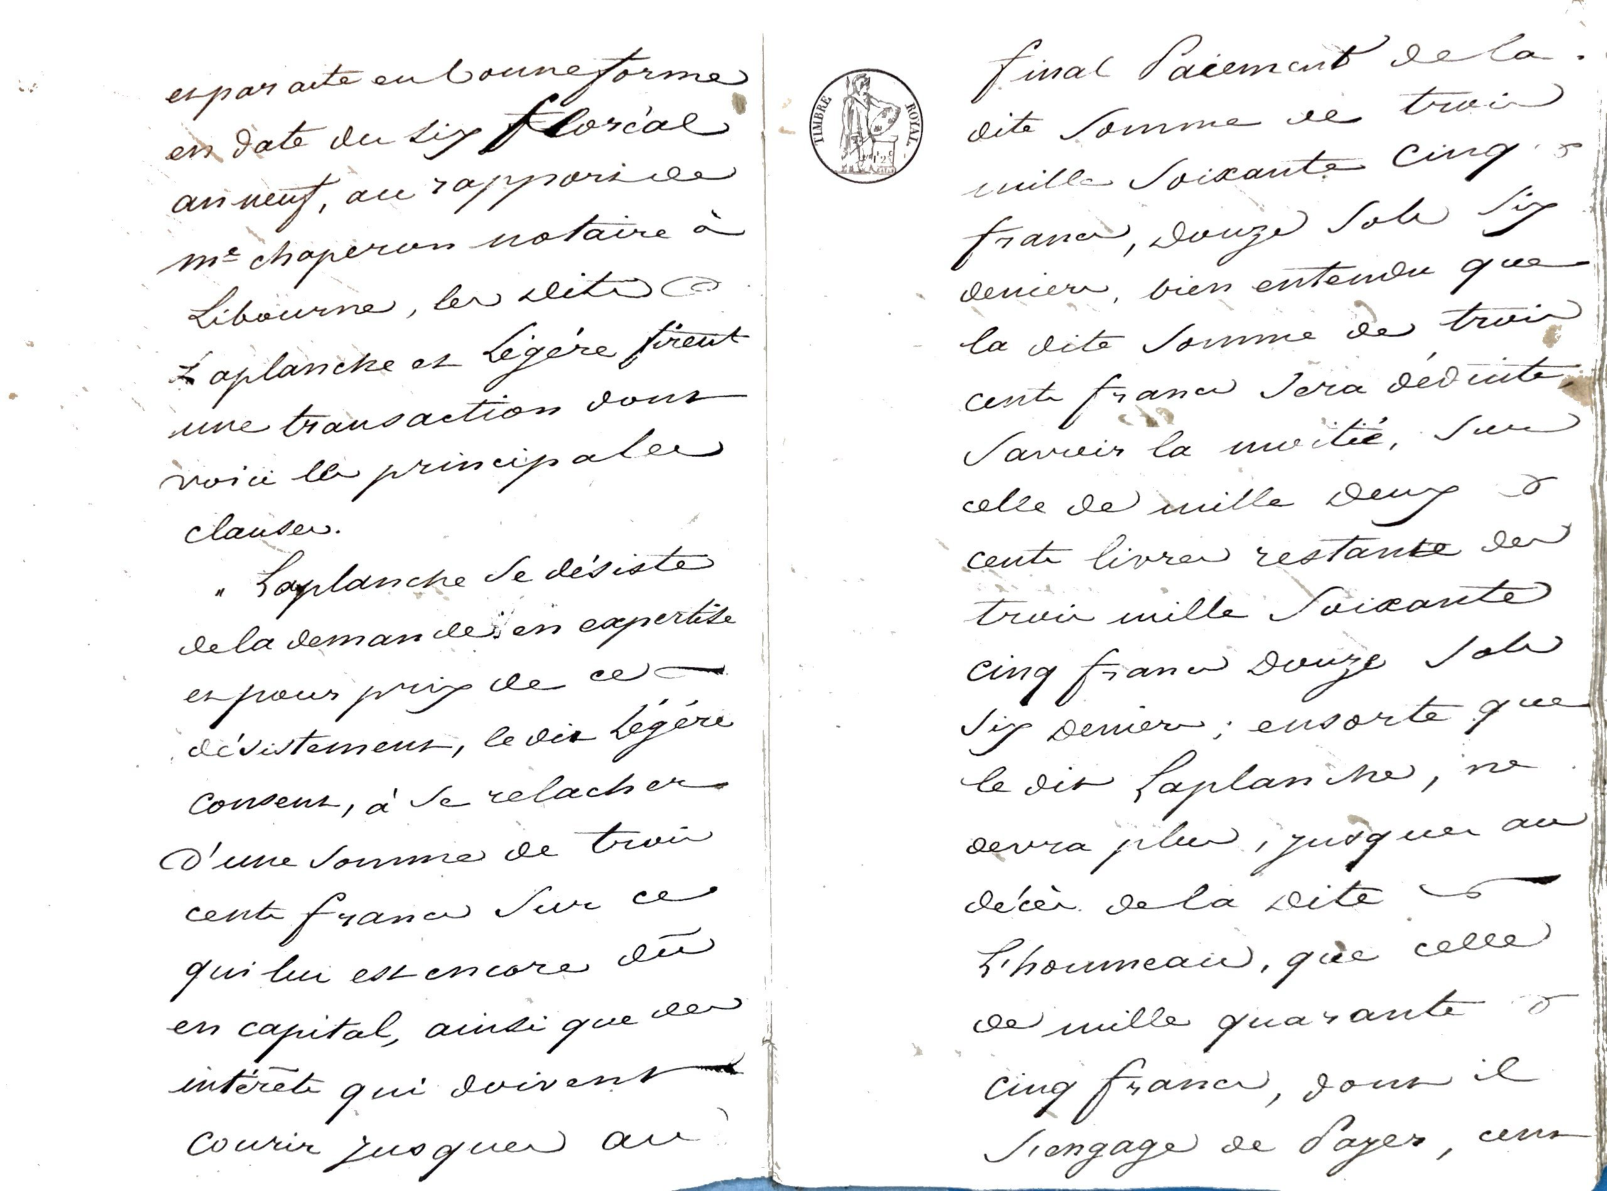 et par acte en bonne forme
en date du six floréal
an neuf, au rapport de
me chaperon notaire à
Libourne, les dits
Laplanche et Légére firent
une transaction dont
voici les principales
clauses.
" Laplanche se désiste
de la demande en expertise
et pour prix de ce
désistement, le dit Légére
consent, à se relacher
d'une somme de trois
cents francs sur ce
qui lui est encore dû
en capital, ainsi que des
intérêts qui doivent
courir jusques au
TIMBRE ROYAL
final Paiement de la
dite somme de trois
mille soixante cinq
francs, douze sols six
deniers, bien entendu que
la dite somme de trois
cents francs sera déduite,
savoir la moitié, sur
celle de mille deux
cents livres restante des
trois mille soixante
cinq francs douze sols
six deniers ; ensorte que
le dit Laplanche, ne
devra plus, jusques au
décès de la dite
L'houmeau, que celle
de mille quarante
cinq francs, dont il
s'engage de Payer, cent